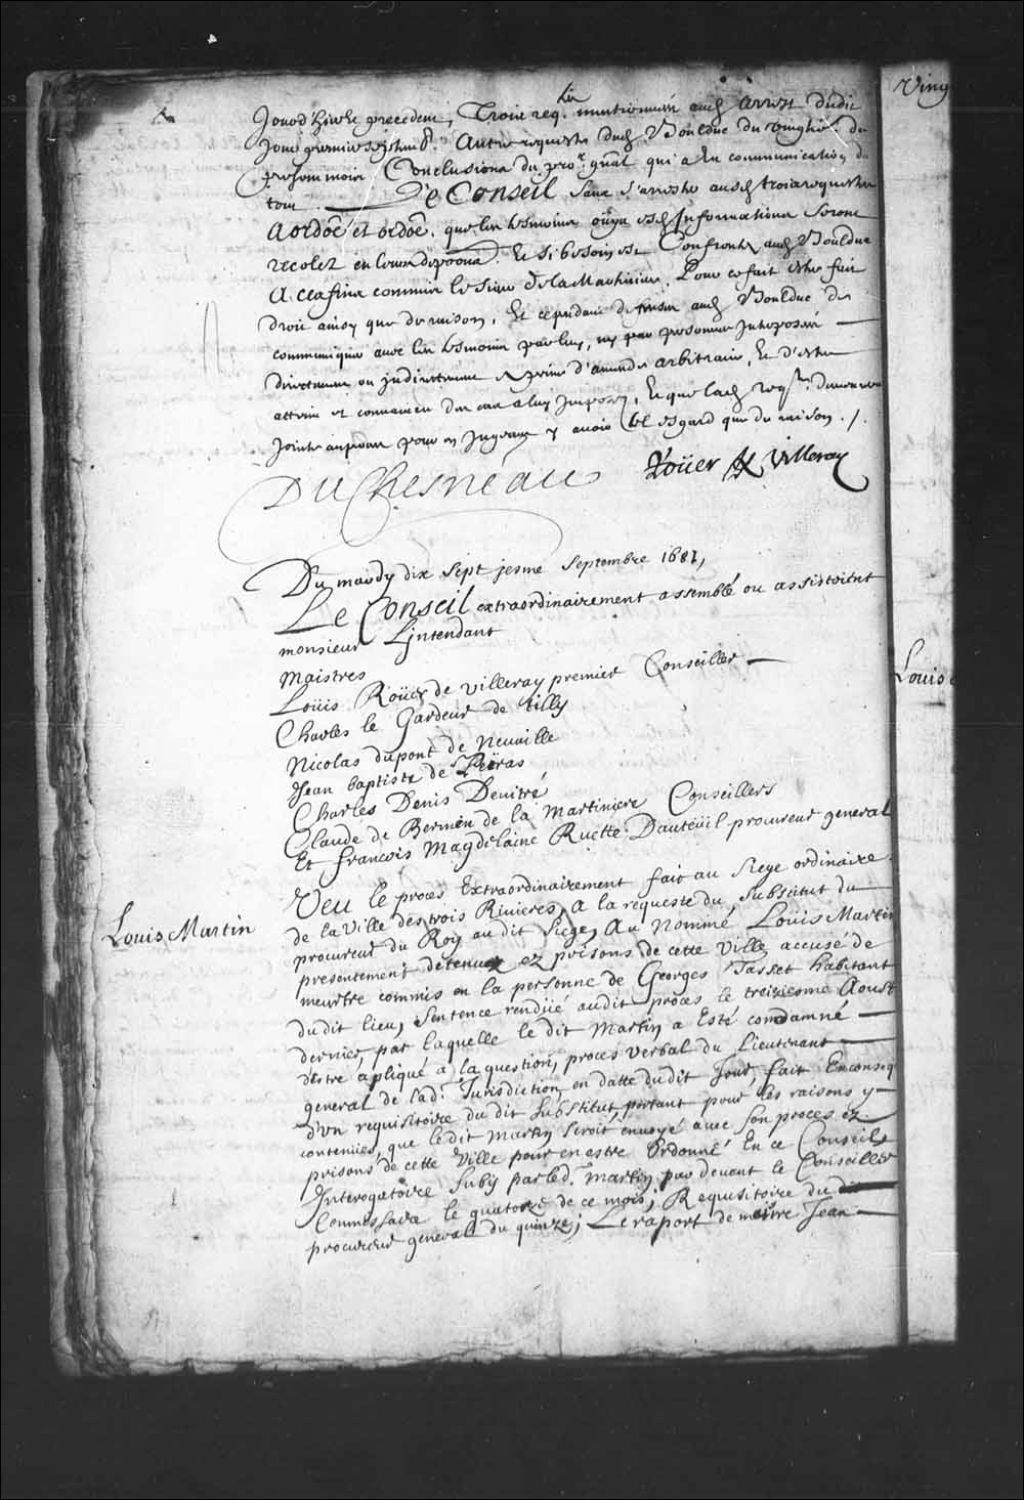 Ving
Jour d'hier precedent, Trois req. mentionnéz aud. arrest dudit
jour premier septemb. Autre requeste dud. Boulduc du vingtie. du
present mois Conclusions du pro.r gñal qui a eu communication du
tout Le Conseil sans s'arrester ausd. trois requestes
a ordoé et ordoé. que les tesmoins oüys esd. Informations seront
recolez en leurs depoons. Et si besoin est Confrontez aud. Boulduc
A cette fin commis le Sieur de la Martiniere. Pour ce fait estre fait
droit ainsy que de raison, Et cependant deffenses aud. Boulduc de
communiquer avec les tesmoins par luy, ny par personnes Interposées
directement ou indirectement a peine d'amende arbitraire, Et d'estre
atteint et convaincu des cas a luy Imposez, Et que lad. req.te demeurera
jointe au procez pour en Jugeant y avoir tel esgard que de raison ./.
DuChesneau Roüer de Villeray
Du mardy dix sept iesme Septembre 1681,
Le Conseil extraordinairement assemblé ou assistoient
monsieur Lintendant
Maistres
Loüis Roüer de villeray premier Conseiller
Charles le Gardeur de tilly
Nicolas dupont de Neuuille
Jean baptiste de Peiras
Charles Denis Deuitré
Claude de Bermen de la martiniere Conseillers
Et francois Magdelaine Ruette Dauteüil procureur general
Louis Martin
Veu le proces Extraordinairement fait au Siege ordinaire
de la Ville des trois Riuieres, A la requeste du Substitut du
procureur du Roy au dit Siege, Au Nommé Loüis Martin
presentement detenu ez prisons de cette Ville accusé de
meurtre commis en la personne de Georges Tasset habitant
du dit lieu, Sentence rendüe audit proces le treiziesme Aoust
dernier par laquelle le dit Martin a Esté condamné
destre apliqué a la question, proces verbal du Lieutenant
general de lad. Jurisdiction en datte dudit Jour, fait Enconseq
d'vn requisitoire du dit Substitut, portant pour les raisons y
contenües, que le dit Martin Seroit enuoyé auec Son proces ez
prisons de cette Ville pour en estre Ordonné En ce Conseil,
Interogatoire Suby par led. Martin par deuant le Conseiller
Commissaire le quatorze de ce mois; Requisitoire du
procureur general du quinze; Le raport de maistre Jean
Louis